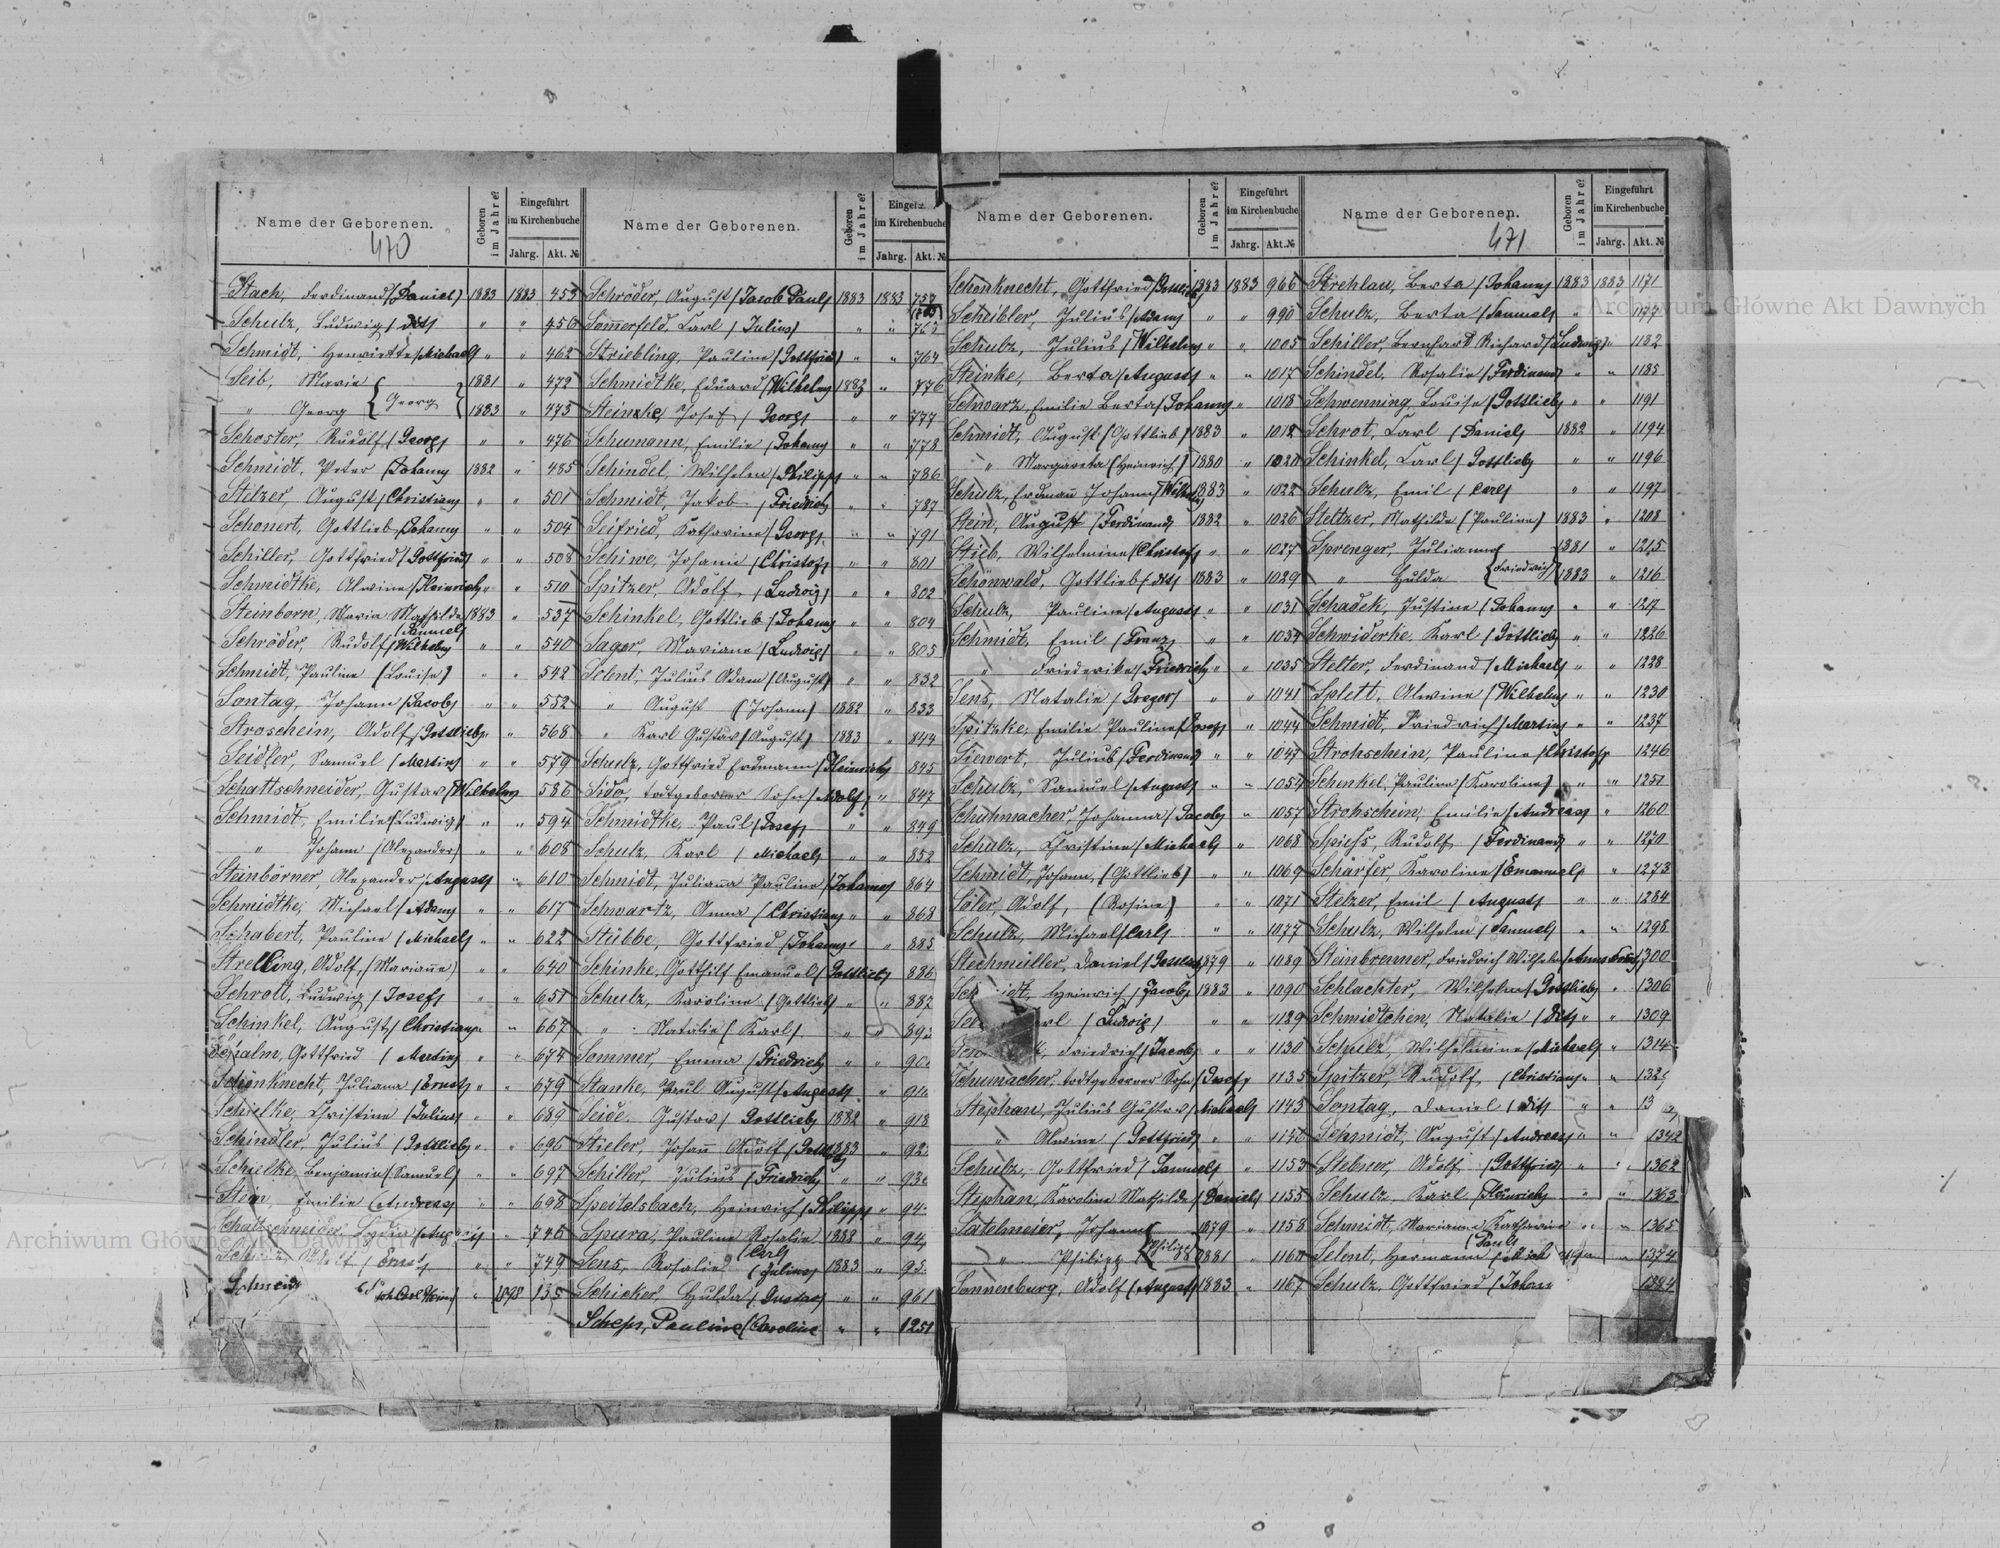 Name der Geborenen.
Geboren im Jahre?
Eingeführt im Kirchenbuche
Jahrg. Akt. №
470
Stach, Ferdinand (Daniel) 1883 1883 453
Schulz, Ludwig (dtto) " " 456
Schmidt, Henriette (Michael) " " 462
Seib, Marie 1881 " 472
{Georg}
" Georg 1883 " 473
Schoster, Rudolf (Georg) " " 476
Schmidt, Peter (Johann) 1882 " 485
Stelzer, August (Christian) " " 501
Schonert, Gottlieb (Johann) " " 504
Schiller, Gottfried (Gottfried) " " 508
Schmidtke, Alwine (Heinrich) " " 510
Steinborn, Maria Mathilde (Samuel) 1883 " 537
Schröder, Rudolf (Wilhelm) " " 540
Schmidt, Pauline (Louise) " " 542
Sontag, Johann (Jacob) " " 552
Stroschein, Adolf (Gottlieb) " " 568
Seidler, Samuel (Martin) " " 579
Schattschneider, Gustav (Wilhelm) " 586
Schmidt, Emilie (Ludwig) " " 594
" Johann (Alexander) " " 608
Steinborner, Alexander (August) " 610
Schmidtke, Michael (Adam) " " 617
Schabert, Pauline (Michael) " " 622
Strelling, Adolf, (Marianne) " " 640
Schrott, Ludwig (Josef) " " 651
Schinkel, August (Christian) " " 667
Schalm, Gottfried (Martin) " " 674
Schönknecht, Juliana (Ernst) " " 679
Schielke, Christine (Julius) " " 689
Schindler, Julius (Gottlieb) " " 695
Schielke, Benjamin (Samuel) " " 697
Stein, Emilie (Andreas) " " 698
Schattschneider, Lydia (August) " " 745
Adolf (Ernst) " " 749
Schmidt 135
Name der Geborenen.
Geboren im Jahre?
im Kirchenbuche
Jahrg. Akt. №
Schröder, August (Jacob Paul) 1883 1883 753
Sommerfeld, Carl (Julius) " " 763
Striebling, Pauline (Gottfried) " " 764
Schmidtke, Eduard (Wilhelm) 1882 " 776
Steinzke, Josef (Georg) " " 777
Schumann, Emilie (Johann) " " 778
Schindel, Wilhelm (Philipp) " " 786
Schmidt, Jakob (Friedrich) " " 787
Seifried, Katharine (Georg) " " 791
Schiwe, Johann (Christof) " " 801
Spitzer, Adolf (Ludwig) " " 802
Schinkel, Gottlieb (Johann) " " 804
Sager, Mariane (Ludwig) " " 805
Selent, Julius Adam (August) " " 832
" August (Johann) 1882 " 833
" Karl Gustav (August) 1883 " 844
Schulz, Gottfried Erdmann (Heinrich) 845
Sido, todtgeborner Sohn (Adolf) " 847
Schmidtke, Paul (Josef) " " 849
Schulz, Karl (Michael) " " 852
Schmidt, Julianna Pauline (Johann) 864
Schwartz, Anna (Christian) " " 868
Stübbe, Gottfried (Johann) " " 885
Schinke, Gotthilf Emanuel (Gottlieb) 886
Schulz, Karoline (Gottlieb) " " 887
" Natalie (Karl) " " 89
Sommer, Emma (Friedrich) " " 90
Stanke, Paul August (August) " 91
Seide, Gustav (Gottlieb) 1882 " 918
Stieler, Johann Adolf 1883 " 92
Schiller, Julius (Friedrich) " " 93
Speitelsbach, Heinrich (Philipp) " 94
Spura, Pauline Rosalie (Carl) 1883 " 94
Sens, Rosalie (Julius) 1883 " 95
Schicker, Hulda (Gustav) " " 961
Scheps, Pauline (Caroline " " 1251
Name der Geborenen.
Geboren im Jahre?
Eingeführt im Kirchenbuche
Jahrg. Akt. №
Schönknecht, Gottfried 1883 1883 966
Scheibler, Julius (Adam) " " 990
Schulz, Julius (Wilhelm) " " 1005
Steinke, Berta (August) " " 1017
Schwarz, Emilie Berta (Johann) " 1018
Schmidt, August (Gottlieb) 1883 " 1019
" Margareta (Heinrich) 1880 " 1020
Schulz, Erdmann Johann (Wilhelm) 1883 " 1022
Stein, August (Ferdinand) 1882 " 1026
Stieb, Wilhelmine (Christof) " " 1027
Schönwald, Gottlieb (dtto) 1883 " 1029
Schulz, Pauline (August) " " 1031
Schmidt, Emil (Franz) " " 1034
" Friederike (Friedrich) " " 1035
Sens, Natalie (Gregor) " " 1041
Spitzke, Emilie Pauline (Josef) " 1044
Siewert, Julius (Ferdinand) " " 1047
Schulz, Samuel (August) " " 1054
Schuhmacher, Johanna (Jacob) " 1057
Schulz, Christine (Michael) " 1068
Schmidt, Johann, (Gottlieb) " " 1069
Söter, Adolf, (Rosine) " " 1071
Schulz, Michael (Carl) " " 1077
Stechmüller, Daniel 1879 " 1089
Heinrich (Jacob) 1883 " 1090
(Ludwig) " " 1129
Friedrich (Jacob) " " 1130
Schumacher, todtgeborner Sohn (Josef) 1135
Stephan, Julius Gustav (Michael) 1143
" Alwine (Gottfried) " "
Schulz, Gottfried (Samuel) " 1153
Stephan, Karoline Mathilde (Daniel) 1155
Satelmeier, Johann 1879 " 1158
{Philipp}
" Philipp 1881 " 1160
Sonnenburg, Adolf (August) 1883 " 1167
Name der Geborenen.
Geboren im Jahre?
Eingeführt im Kirchenbuche
Jahrg. Akt. №
471
Strehlau, Berta (Johann) 1883 1883 1171
Schulz, Berta (Samuel) " " 1177
Schiller, Bernhard Richard (Ludwig) " 1182
Schindel, Rosalie (Ferdinand) " " 1185
Schwenning, Louise (Gottlieb) " " 1191
Schrot, Carl (Daniel) 1882 " 1194
Schinkel, Carl (Gottlieb) " " 1196
Schulz, Emil (Carl) " " 1197
Steltzer, Mathilde (Pauline) 1883 " 1208
Sprenger, Julianna 1881 " 1215
{Friedrich}
" Hulda 1883 " 1216
Schadek, Justine (Johann) " " 1217
Schwiderke, Karl (Gottlieb) " " 1226
Stelter, Ferdinand (Michael) " " 1228
Splett, Alwine (Wilhelm) " " 1230
Schmidt, Friedrich (Martin) " " 1237
Strohschein, Pauline (Christof) 1246
Schenkel, Pauline (Karoline) " " 1251
Strohschein, Emilie (Andreas) " 1260
Spiehs, Rudolf (Ferdinand) " " 1270
Schärfer, Karoline (Emanuel) " 1273
Stelzer, Emil (August) " " 1284
Schulz, Wilhelm (Samuel) " " 1298
Steinbrenner, Friedrich Wilhelm 1300
Schlachter, Wilhelm (Gottlieb) " 1306
Schmidtchen, Natalie (dtto) " " 1309
Schulz, Wilhelmine (Michael) " 1314
Spitzer, Rudolf (Christian) " " 132
Sontag, Daniel (dtto) " " 13
Schmidt, August (Andreas) " " 1342
Stebner, Adolf (Gottfried) " " 1362
Schulz Karl (Heinrich) " " 1363
Schmidt, Marianna Katharina (Paul) " " 1365
Selent, Hermann " 1374
Schulz, Gottfried (Johan 1384
Archiwum Główne Akt Dawnych
Archiwum Główne Akt Dawnych